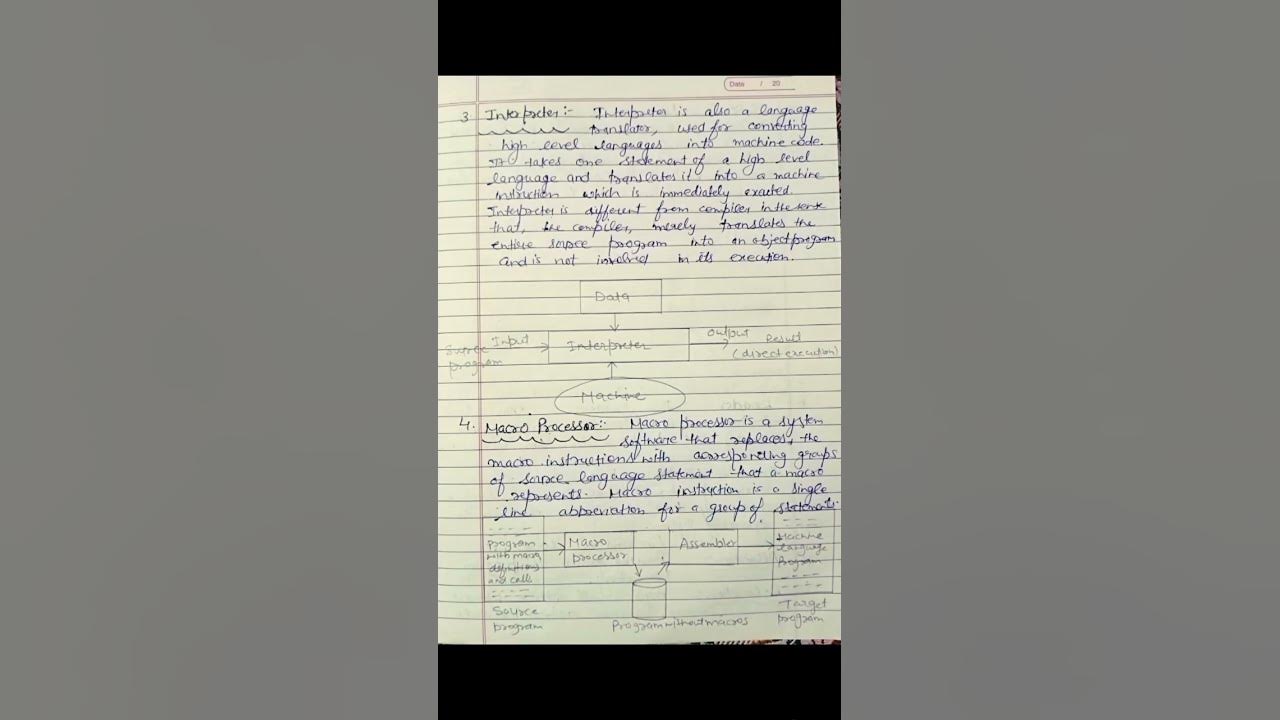 Date / 20
3 Interpreter:- Interpreter is also a language
translator, used for converting
high level languages into machine code.
It takes one statement of a high level
language and translates it into a machine
instruction which is immediately exacted.
Interpreter is different from compiler in the sense
that, the compiler, merely translates the
entire source program into an object program
and is not involved in its execution.
Data
Input
Source
program
Interpreter
output
Result
(direct execution)
Machine
4. Macro Processor:- Macro processor is a system
software that replaces, the
macro instructions with corresponding groups
of source language statement that a macro
represents. Macro instruction is a single
line abbreviation for a group of statements.
Program
with macro
definitions
and calls
Macro
processor
Assembler
Machine
language
Program
Source
program
Program without macros
Target
program